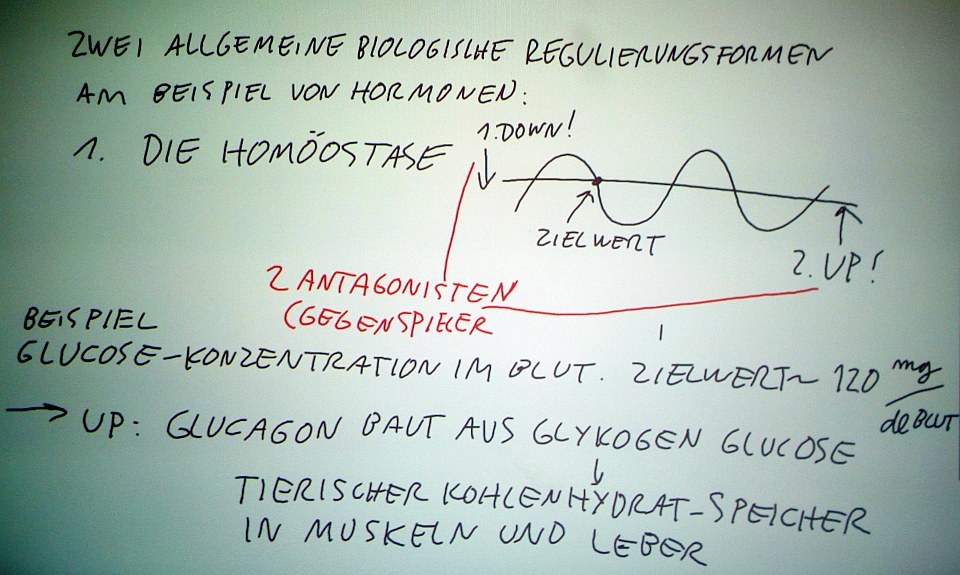 ZWEI ALLGEMEINE BIOLOGISCHE REGULIERUNGSFORMEN
AM BEISPIEL VON HORMONEN:
1. DIE HOMÖOSTASE
1. DOWN!
ZIELWERT
2. UP!
2 ANTAGONISTEN
(GEGENSPIELER
BEISPIEL
GLUCOSE-KONZENTRATION IM BLUT. ZIELWERT~ 120 mg/dl BLUT
→ UP: GLUCAGON BAUT AUS GLYKOGEN GLUCOSE
TIERISCHER KOHLENHYDRAT-SPEICHER
IN MUSKELN UND LEBER